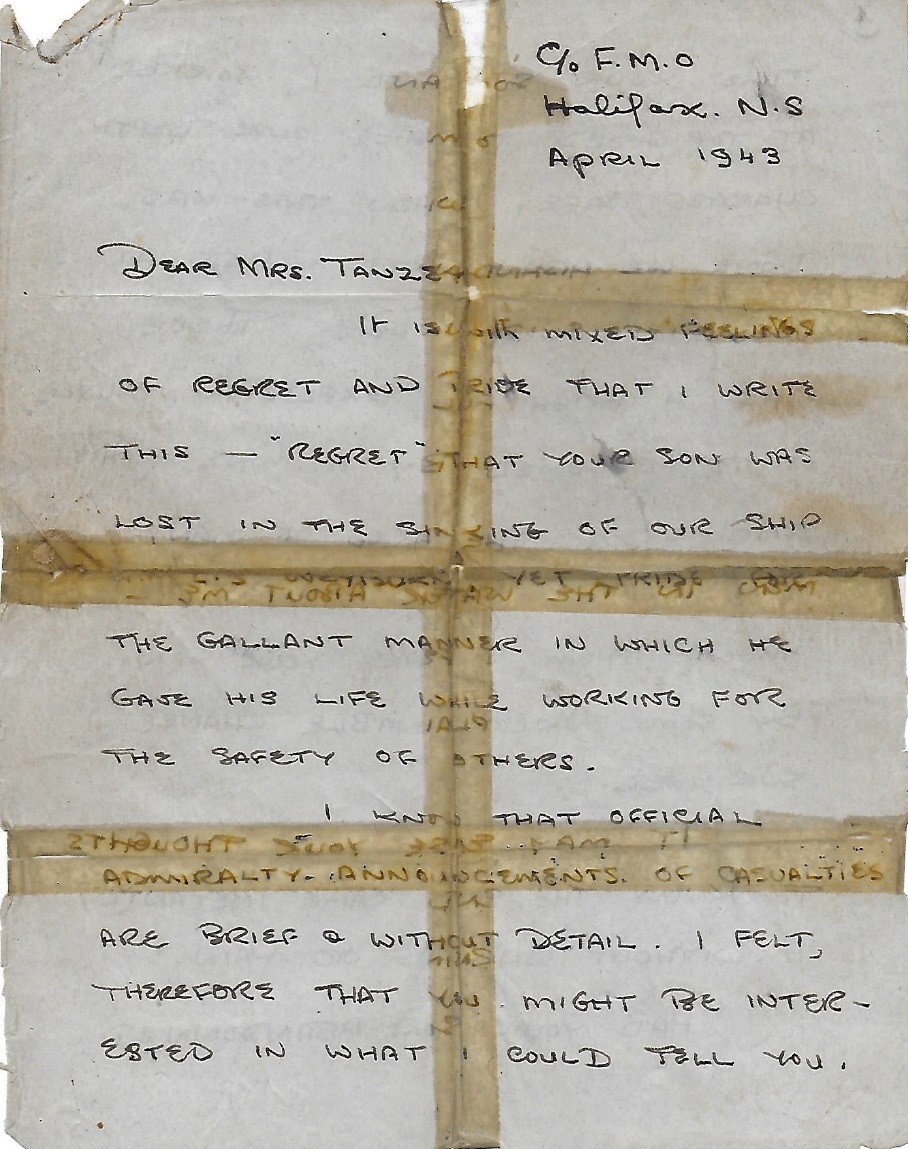 C/o F.M.O
Halifax. N.S
APRIL 1943
DEAR MRS.
It is with MIXED FEELINGS
OF REGRET AND PRIDE THAT I WRITE
THIS — "REGRET" THAT YOUR SON WAS
LOST IN THE SINKING OF OUR SHIP
WEYBURN YET PRIDE FOR
THE GALLANT MANNER IN WHICH HE
GAVE HIS LIFE WHILE WORKING FOR
THE SAFETY OF OTHERS.
I KNOW THAT OFFICIAL
ADMIRALTY. ANNOUNCEMENTS. OF CASUALTIES
ARE BRIEF & WITHOUT DETAIL. I FELT,
THEREFORE THAT YOU MIGHT BE INTER-
ESTED IN WHAT I COULD TELL YOU.